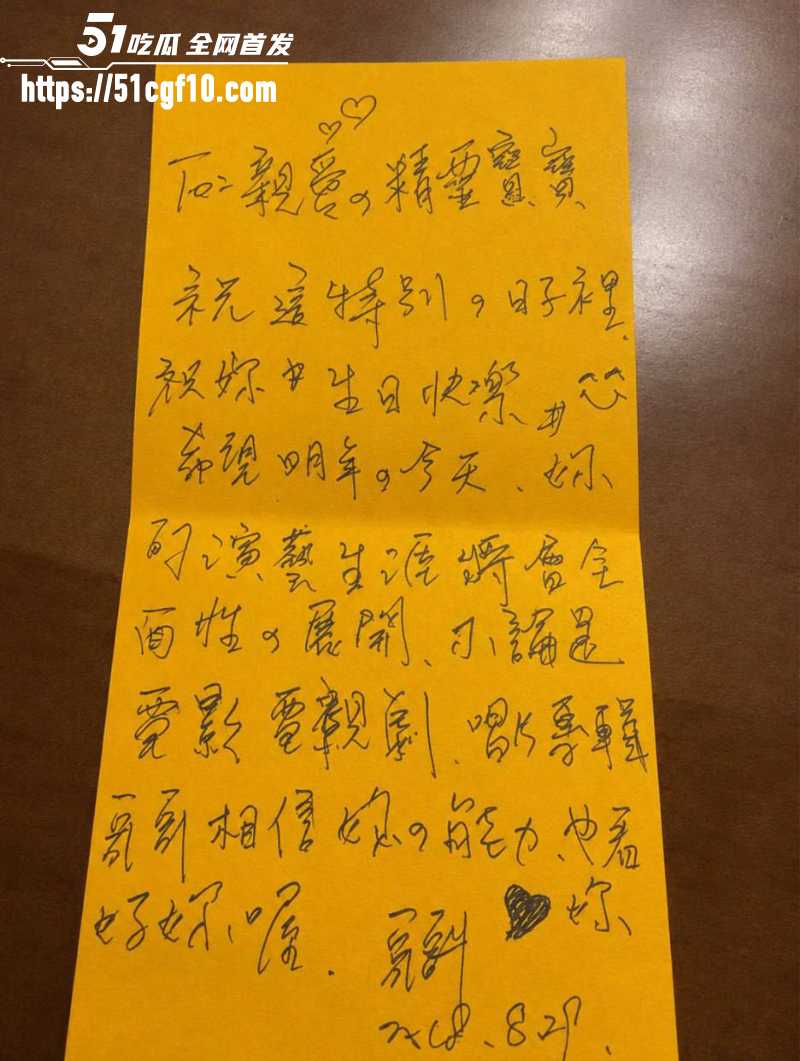 51吃瓜 全网首发
https://51cgf10.com
To:親愛の精靈寶寶
祝這特別の日子裡、
祝妳 生日快樂
希望明年の今天、妳
的演藝生涯將會全
面性の展開、不論是
電影 電視劇、唱片專輯
哥哥相信妳の能力、也看
好妳喔. 哥哥 妳
8.29.